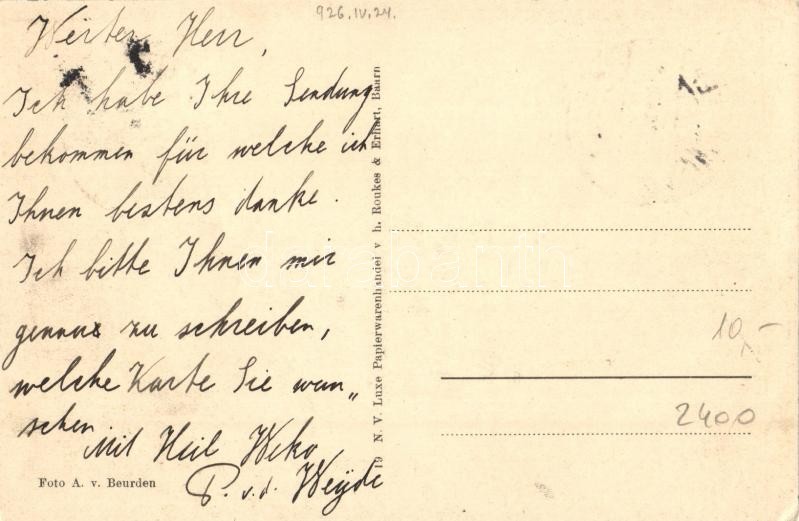 926.IV.24.
Werter Herr,
Ich habe Ihre Sendung
bekommen für welche ich
Ihnen bestens danke.
Ich bitte Ihnen mir
genau zu schreiben,
welche Karte Sie wün„
schen
Mit Heil Weko
P. v. d. Weyde
Foto A. v. Beurden
19 N. V. Luxe Papierwarenhandel v h. Roukes & Erhart, Baarn
10,-
2400
darabanth